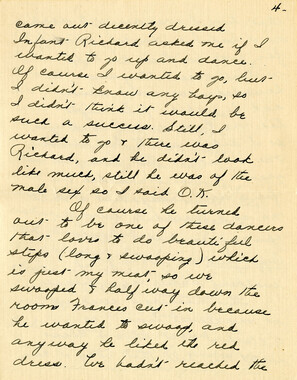 4-
come out decently dressed
Infant Richard asked me if I
wanted to go up and dance.
Of course I wanted to go, but
I didn't know any boys, so
I didn't think it would be
such a success. Still, I
wanted to go & there was
Richard, and he didn't look
like much, still he was of the
male sex so I said O.K.
Of course he turned
out to be one of these dancers
that loves to do beautiful
steps (long & swooping) which
is just my meat so we
swooped & half way down the
room Frances cut in because
he wanted to swoop, and
anyway he liked the red
dress. We hadn't reached the